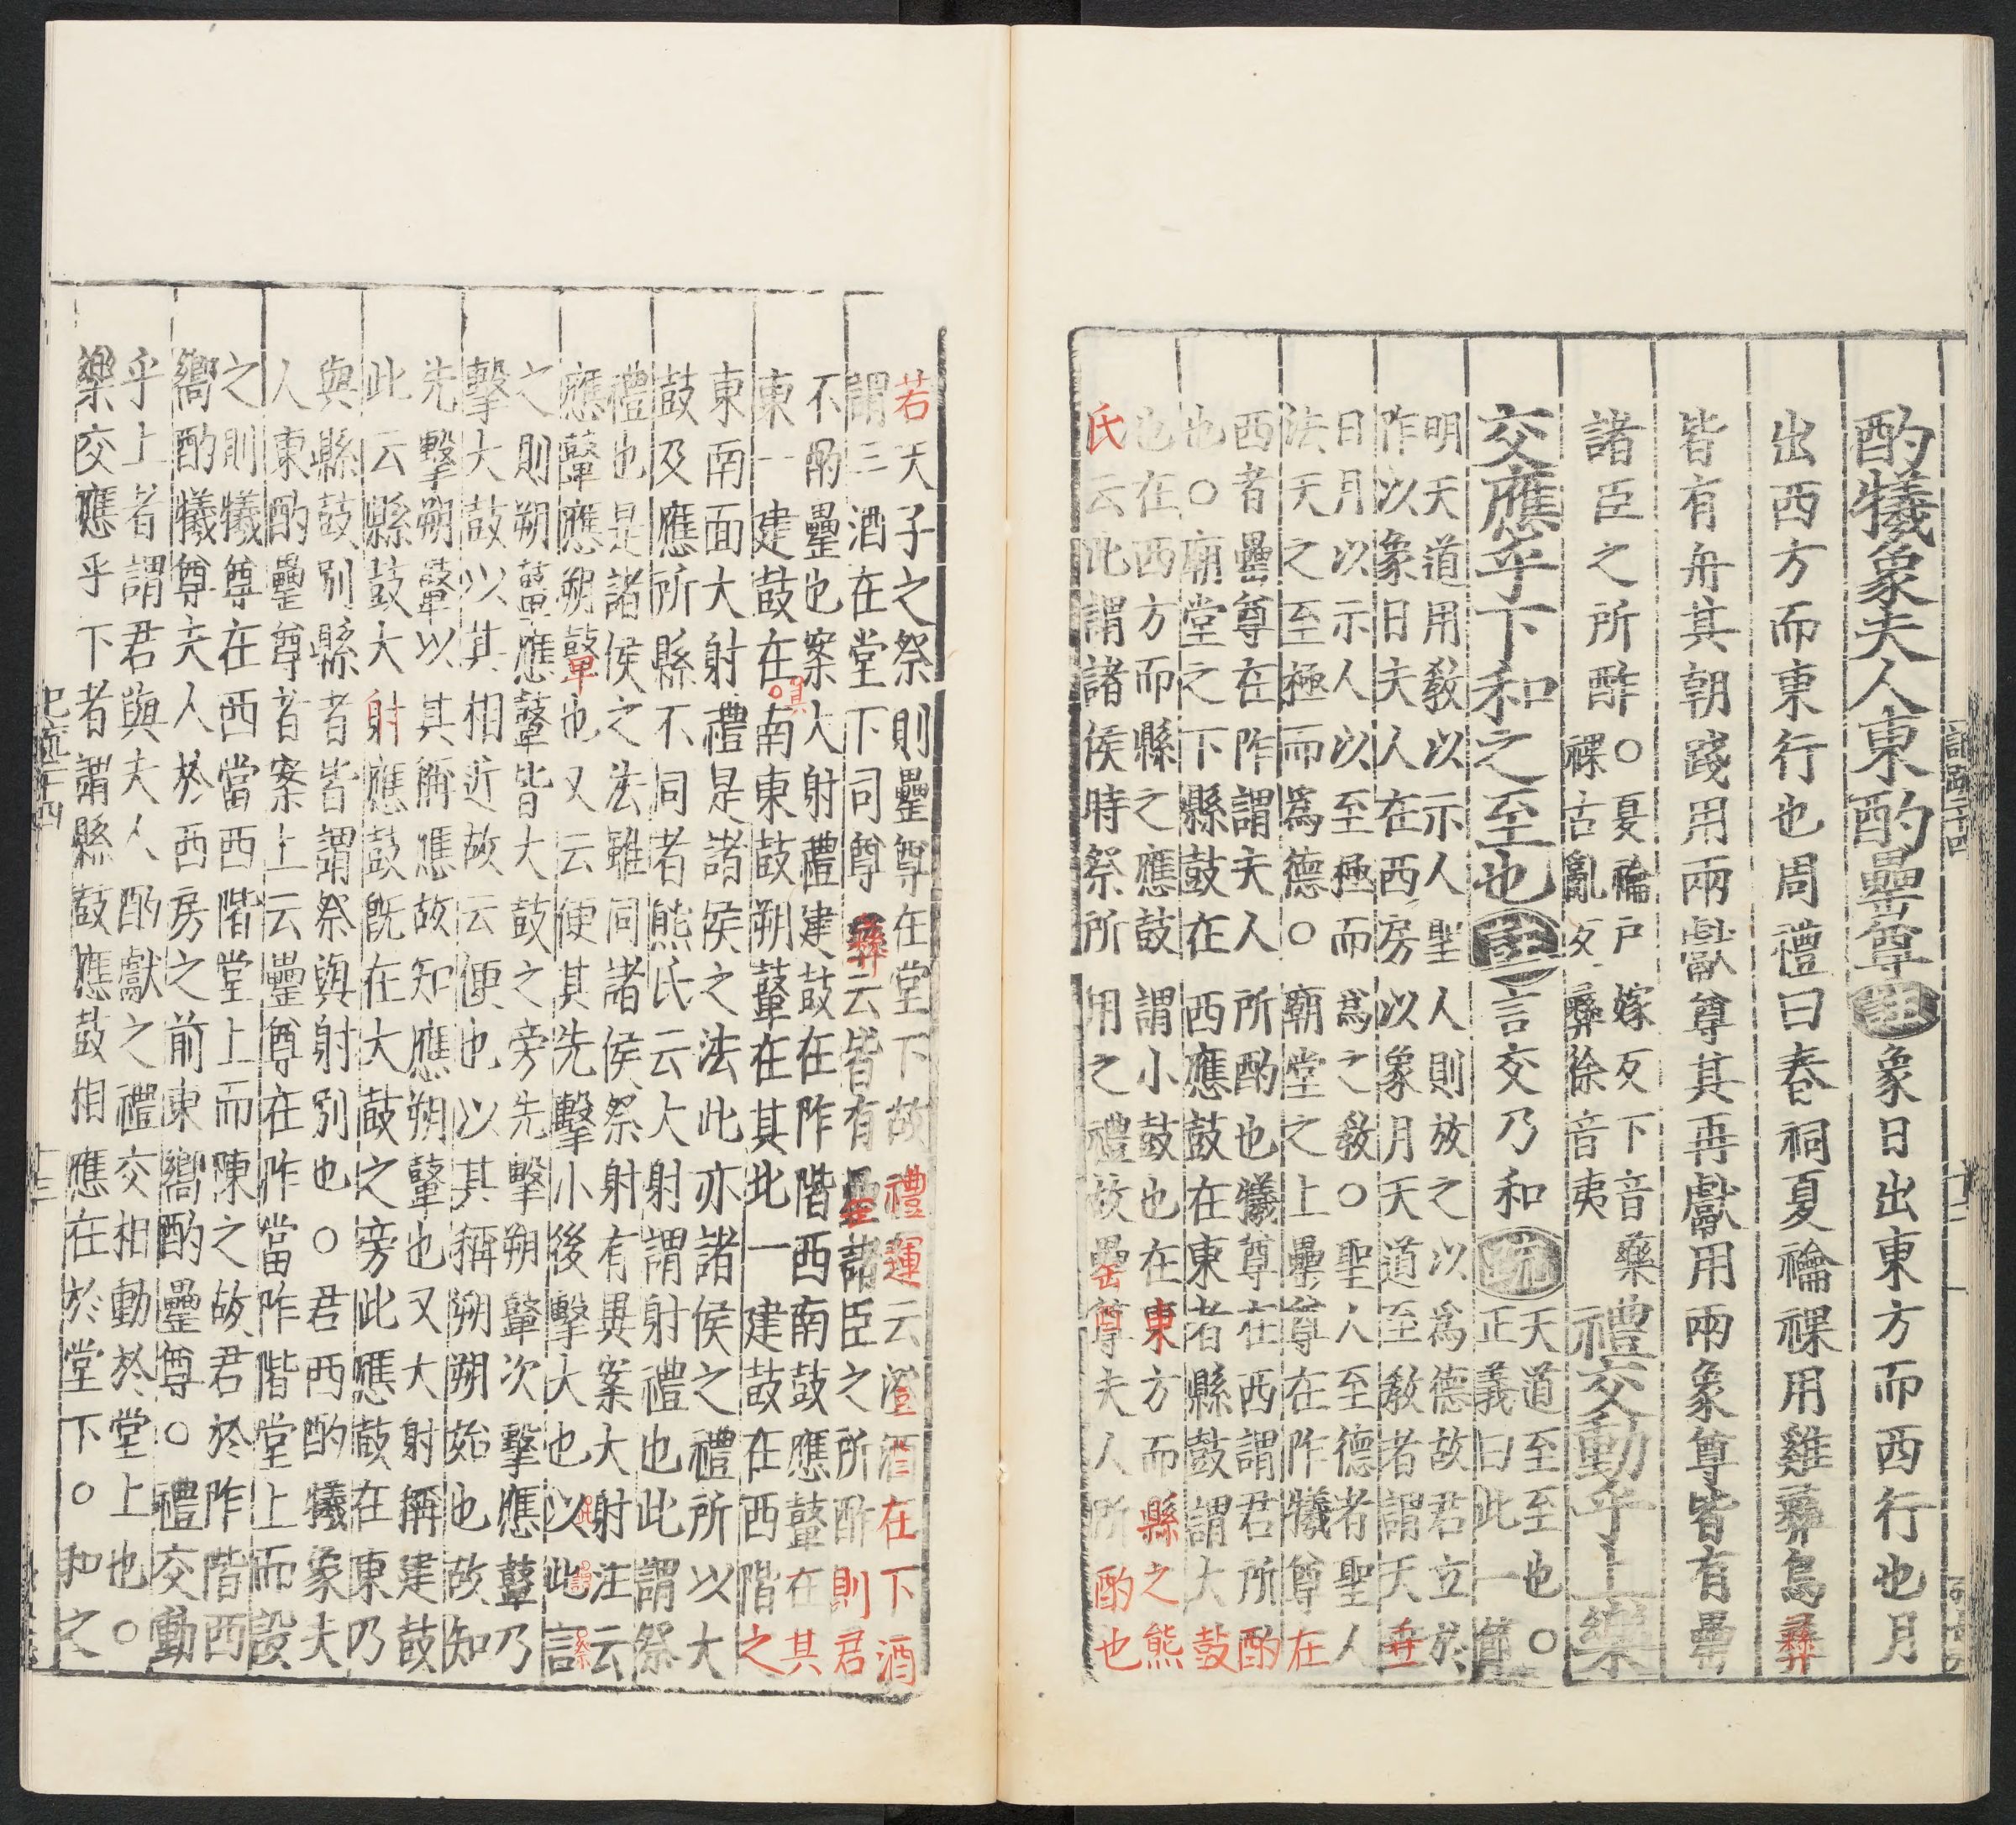 酌犧象夫人東酌罍尊註象日出東方而西行也月
出西方而東行也周禮曰春祠夏禴祼用雞彝鳥彝
皆有舟其朝踐用兩獻尊其再獻用兩象尊皆有罍
諸臣之所酢○夏禴戶嫁反下音藥
祼古亂反彝徐音夷
禮交動乎上樂
交應乎下和之至也註言交乃和疏天道至至也○
正義曰此一節
明天道用教以示人聖人則放之以爲德故君立於
阼以象日夫人在西房以象月天道至教者謂天垂
日月以示人以至極而爲之教○聖人至德者聖人
法天之至極而爲德○廟堂之上罍尊在阼犧尊在
西者罍尊在阼謂夫人所酌也犧尊在西謂君所酌
也○廟堂之下縣鼓在西應鼓在東者縣鼓謂大鼓
也在西方而縣之應鼓謂小鼓也在東方而縣之熊
氏云此謂諸侯時祭所用之禮故罍尊夫人所酌也
若天子之祭則罍尊在堂下故禮運云澄酒在下酒
謂三酒在堂下司尊彝云皆有罍諸臣之所酢則君
不酌罍也案大射禮建鼓在阼階西南鼓應鼙在其
東一建鼓在南東鼓朔鼙在其北一建鼓在西階之
東南面大射禮是諸侯之法此亦諸侯之禮所以大
鼓及應所縣不同者熊氏云大射謂射禮也此謂祭
禮也是諸侯之法雖同諸侯祭射有異案大射注云
應鼙應朔鼙也又云便其先擊小後擊大也以此言
之則朔鼙應鼙皆大鼓之旁先擊朔鼙次擊應鼙乃
擊大鼓以其相近故云便也以其稱朔朔始也故知
先擊朔鼙以其稱應故知應朔鼙也又大射稱建鼓
此云縣鼓大射應鼓既在大鼓之旁此應鼓在東乃
與縣鼓別縣者皆謂祭與射別也○君西酌犧象夫
人東酌罍尊者案上云罍尊在阼當阼階堂上而設
之則犧尊在西當西階堂上而陳之故君於阼階西
嚮酌犧尊夫人於西房之前東嚮酌罍尊○禮交動
乎上者謂君與夫人酌獻之禮交相動於堂上也○
樂交應乎下者謂縣鼓應鼓相應在於堂下○和之